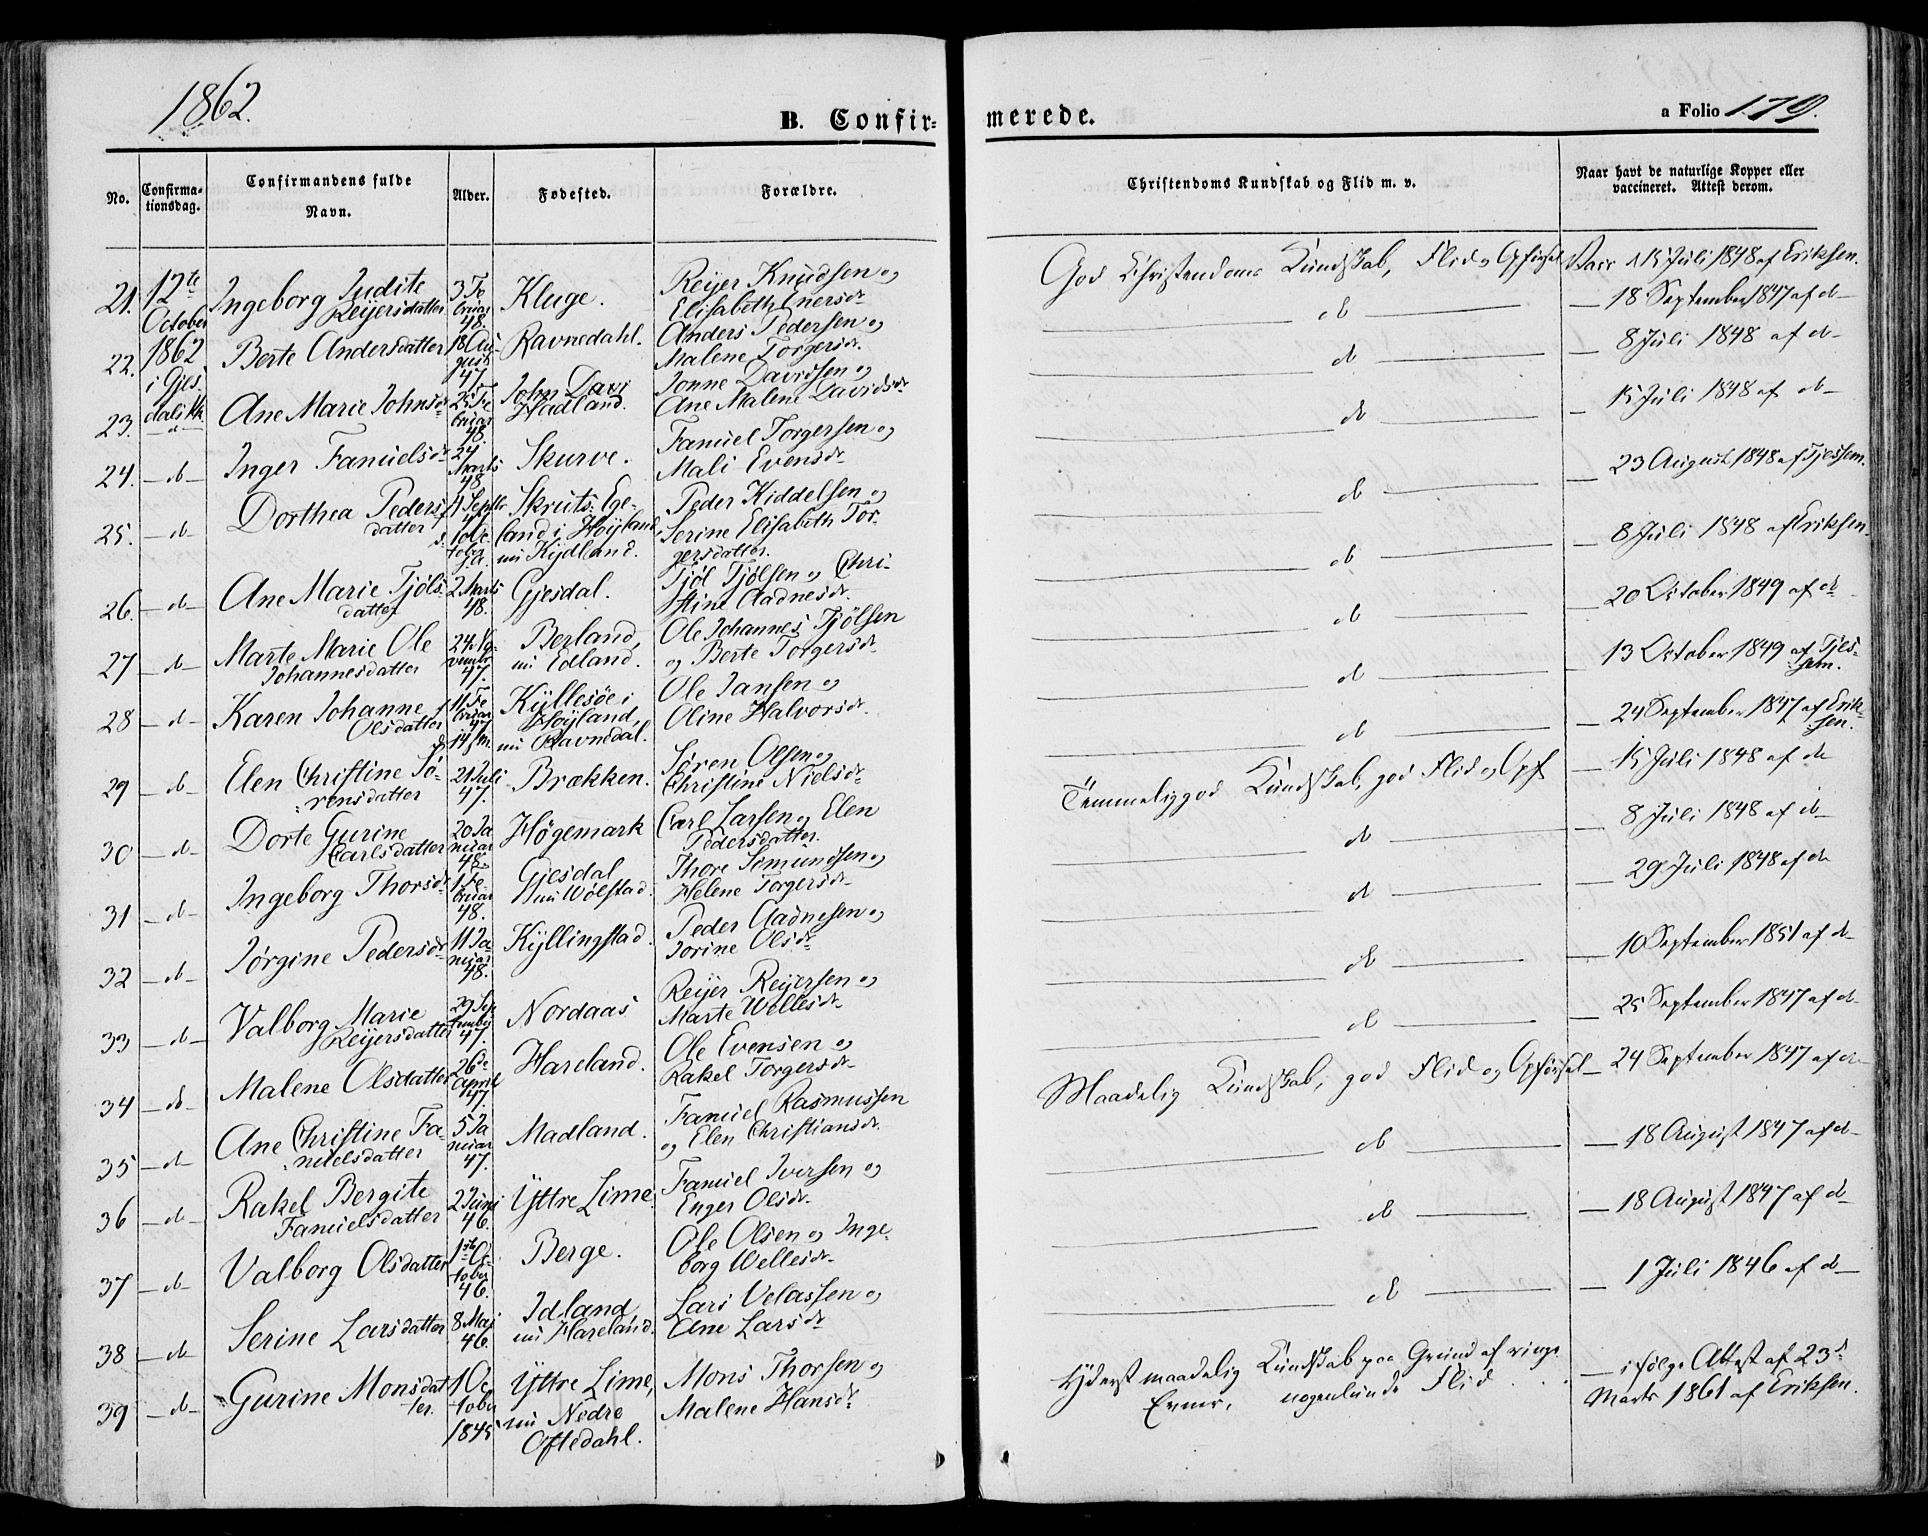 1862.
B. Confirmerede.
a Folio 179.
No.
Confirma-
tionsdag.
Confirmandens fulde
Navn.
Alder.
Fødested.
Forældre.
Christendoms Kundskab og Flid m. v.
Naar havt de naturlige Kopper eller
vaccineret. Attest derom.
21. 12te October 1862 i Gjesdal Kk
Ingeborg Judite Reijersdatter
3 Februar 48.
Kluge.
Reijer Knudsen og Elisabeth Enersdr
God Christendoms Kundskab, Flid og Opførsel
Vacc. 15 Juli 1848 af Eriksen.
22. Berte Andersdatter
18 August 47.
Ravnedahl.
Anders Pedersen og Malene Torgersdr.
do
18 September 1847 af do
23. -do-
Ane Marie Johnsdr
25 Februar 48.
Hadland.
Jonne Davidsen og Ane Malene Davidsdr
do
8 Juli 1848 af do
24. -do-
Inger Fanuelsdr
24 Marts 48
Skurve.
Fanuel Torgersen og Mali Evensdr
do
15 Juli 1848 af do
25. -do-
Dorthea Pedersdatter
4 Septbr 47
Skruts: Egeland i Høyland, nu Kydland.
Peder Kiddelsen og Serine Elisabeth Torgersdatter.
do
23 August 1848 af Tjessem.
26. -do-
Ane Marie Tjølsdatter
2 Marts 48.
Gjesdal.
Tjøl Tjølsen og Christine Aadnesdr.
do
8 Juli 1848 af Eriksen.
27 -do-
Marte Marie Ole Johannesdatter
24 November 47.
Berland, nu Edland.
Ole Johannes Tjølsen og Berte Torgersdr.
do
20 October 1849 af do
28 -do-
Karen Johanne Olsdatter
11 Februar 47
Kyllesøe i Høyland, nu Ravnedal.
Ole Jansen og Oline Halvorsdr.
do
13 October 1849 af Tjessem.
29 -do-
Elen Christine Sørensdatter
21 Juli 47.
Brækken.
Søren Olsen og Christine Nielsdr
do
24 September 1847 af Eriksen.
30 -do-
Dorte Gurine Carlsdatter
20 Januar 48.
Høgemark
Carl Larsen og Elen Pedersdatter.
Temmelig god Kundskab, god Flid og Opf
15 Juli 1848 af do
31 -do-
Ingeborg Thorsdr
1 Februar 48.
Gjesdal nu Wølstad.
Thore Simundsen og Helene Torgersdr
do
8 Juli 1848 af do
32 -do-
Jørgine Pedersdr
11 Januar 48.
Kyllingstad.
Peder Aadnesen og Jorine Olsdr
do
29 Juli 1848 af do
33 -do-
Valborg Marie Reijersdatter
29 September 47.
Nordaas
Reijer Reijersen og Marte Wellesdr
do
10 September 1851 af do
34 -do-
Malene Olsdatter
26de April 47.
Hareland.
Ole Evensen og Rakel Torgersdr
do
25 September 1847 af do
35 -do-
Ane Christine Fanuelsdatter
5 Januar 47.
Madland.
Fanuel Rasmussen og Elen Christiansdr.
Maadelig Kundskab, god Flid og Opførsel
24 September 1847 af do
36 -do-
Rakel Bergite Fanuelsdatter
2 Juni 46.
Yttre Lime
Fanuel Iversen og Enger Olsdr.
do
18 August 1847 af do
37 -do-
Valborg Olsdatter
1ste October 46.
Berge.
Ole Olsen og Ingeborg Wellesdr
do
18 August 1847 af do
38 -do-
Serine Larsdatter
8 Mai 46.
Idland nu Hareland.
Lars Velassen og Ane Larsdr
do
1 Juli 1846 af do
39 -do-
Gurine Monsdatter.
1 October 1845
Yttre Lime, nu Nedre Oftedahl.
Mons Thorsen og Malene Hansdr
Yderst maadelig Kundskab paa Grund af ringe Evner, nogenlunde Flid
ifølge Attest af 23de Marts 1861 af Eriksen.